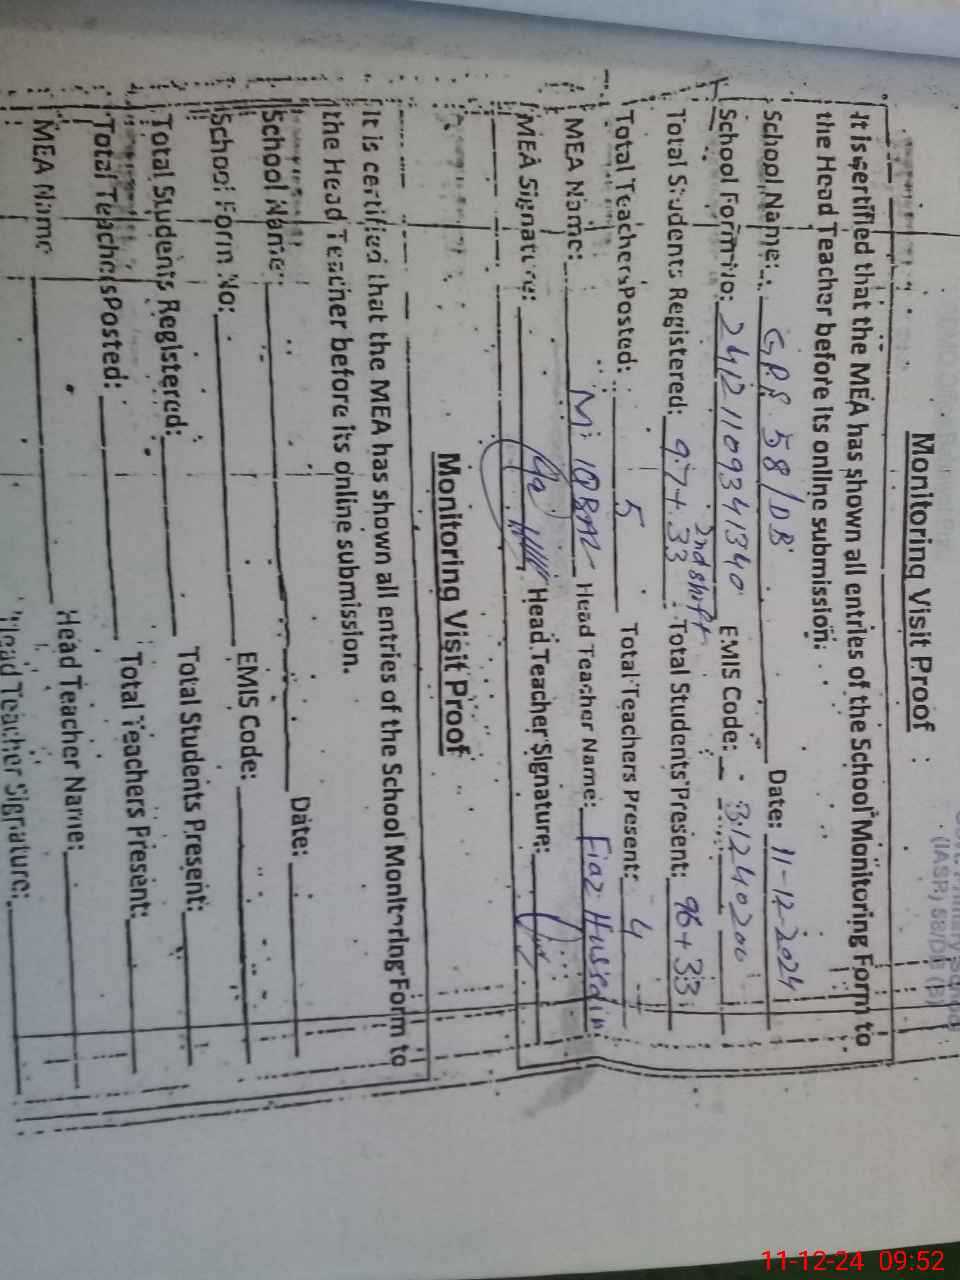 Monitoring Visit Proof
It is certified that the MEA has shown all entries of the School Monitoring Form to
the Head Teacher before its online submission.
School Name: GPS 58/DB Date: 11-12-2024
School Form No: 24121109341340 EMIS Code: 31240200
2nd shift
Total Students Registered: 97+33 Total Students Present: 96+33
Total Teachers Posted: 5 Total Teachers Present: 4
MEA Name: M. IQBAL Head Teacher Name: Fiaz Hussain
MEA Signature: Head Teacher Signature:
Monitoring Visit Proof
It is certified that the MEA has shown all entries of the School Monitoring Form to
the Head Teacher before its online submission.
School Name: Date:
School Form No: EMIS Code:
Total Students Registered: Total Students Present:
Total Teachers Posted: Total Teachers Present:
MEA Name Head Teacher Name:
Head Teacher Signature:
11-12-24 09:52